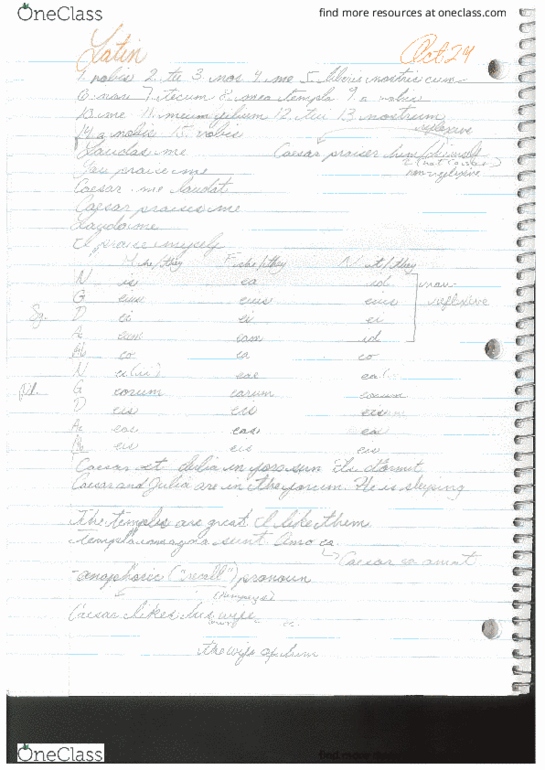 OneClass find more resources at oneclass.com
Latin Oct 24
1. nobis 2. tu 3 nos 4. me 5. nostris cum
7. tecum 8. mea templa 9. a nobis
10. me 11. meum filium 12. tui 13. nostrum
14 a nobis 15. vobis reflexive
Laudas me Caesar praises him/
You praise me non reflexive
Caesar me laudat
Caesar praises me
Laudo me
I praise myself
M he/they F she/they N it/they
N is ea id non
G eius eius eius reflexive
Sg. D ei ei ei
Ac eum eam id
Ab eo ea eo
N ei (ii) eae ea
Pl. G eorum earum eorum
D eis eis eis
Ac eos eas ea
Ab eis eis eis
Caesar et Julia in foro sunt. Is dormit
Caesar and Julia are in the forum. He is sleeping
The temples are great. I like them.
templa magna sunt. Amo ea.
Caesar ea amat
-anaphoric ("recall") pronoun
Caesar likes his wife
the wife of him
OneClass find more